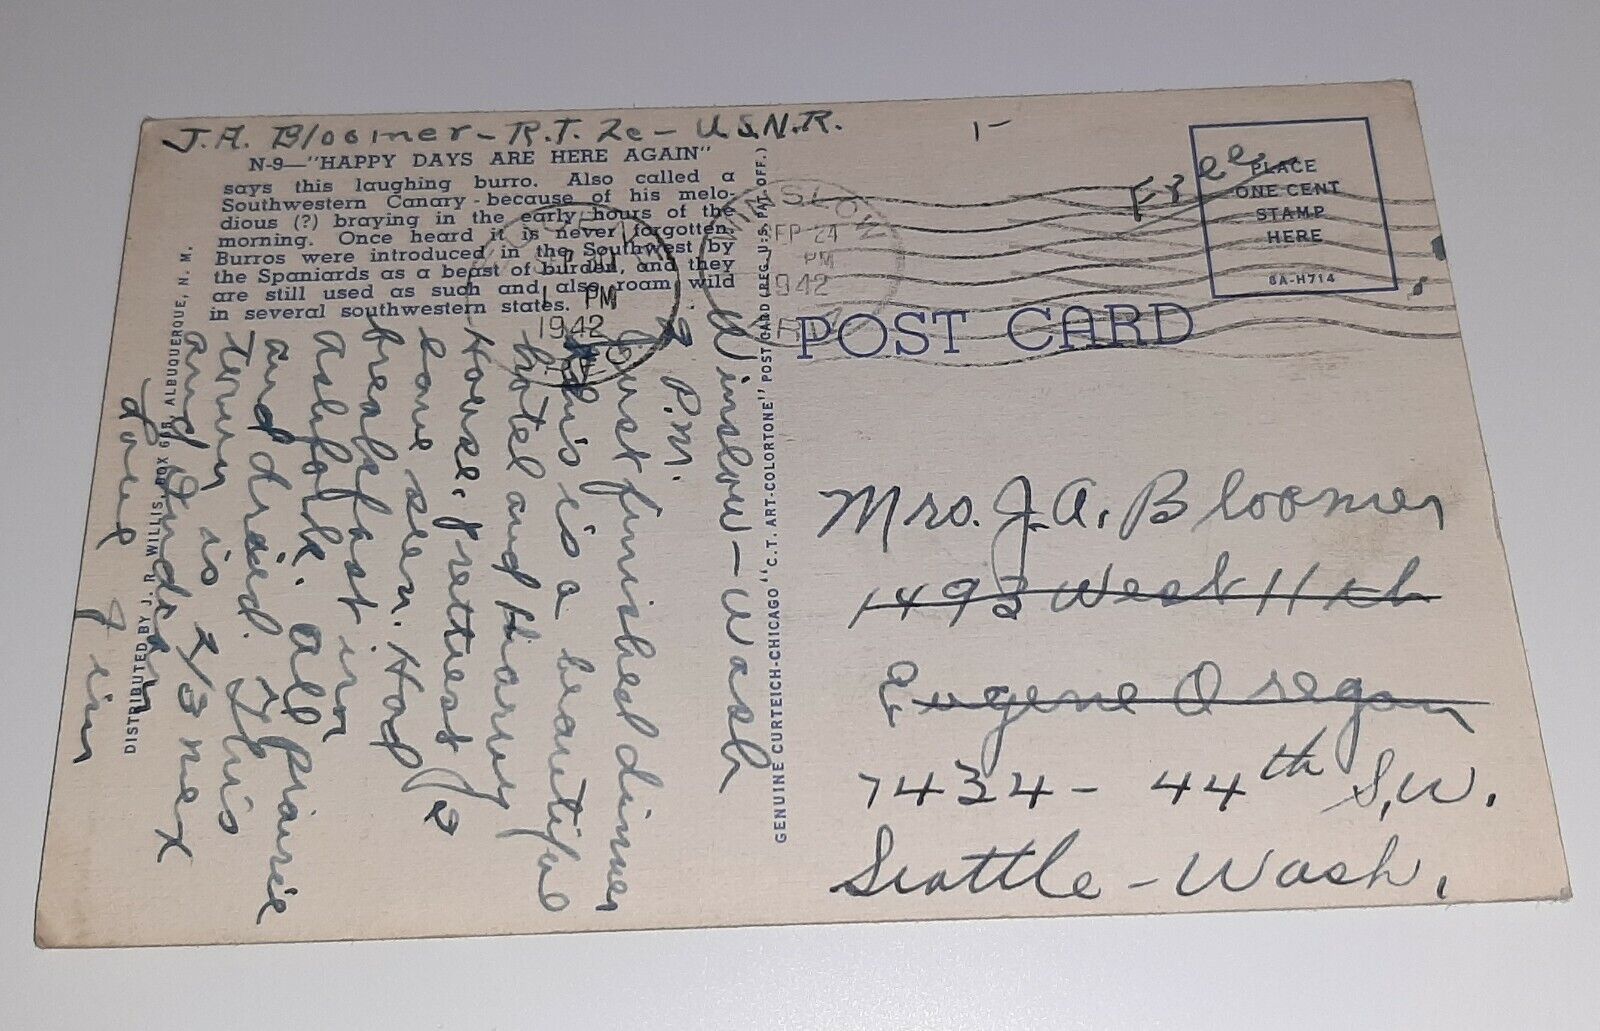 J. A. Bloomer – R.T. 2c – U.S.N.R.
1-
N-9—"HAPPY DAYS ARE HERE AGAIN"
says this laughing burro. Also called a
Southwestern Canary - because of his melo-
dious (?) braying in the early hours of the
morning. Once heard it is never forgotten.
Burros were introduced in the Southwest by
the Spaniards as a beast of burden, and they
are still used as such and also roam wild
in several southwestern states.
1 PM
1942
WINSLOW
SEP 24
PM
1942
ARIZ
Free
PLACE
ONE CENT
STAMP
HERE
8A-H714
POST CARD
GENUINE CURTEICH-CHICAGO "C.T. ART-COLORTONE" POST CARD (REG. U.S. PAT. OFF.)
DISTRIBUTED BY J. R. WILLIS, BOX 688, ALBUQUERQUE, N. M.
Winslow – Wash
2 P.M.
Just finished dinner
This is a beautiful
hotel and Harvy
House. Prettiest I
have seen. Had
breakfast in
Ashfork. All prairie
and dried. This
town is 2/3 mex
and Indian
Love
Jim
Mrs. J. A. Bloomer
1493 West 11th
Eugene Oregon
7434 – 44th S.W.
Seattle – Wash.